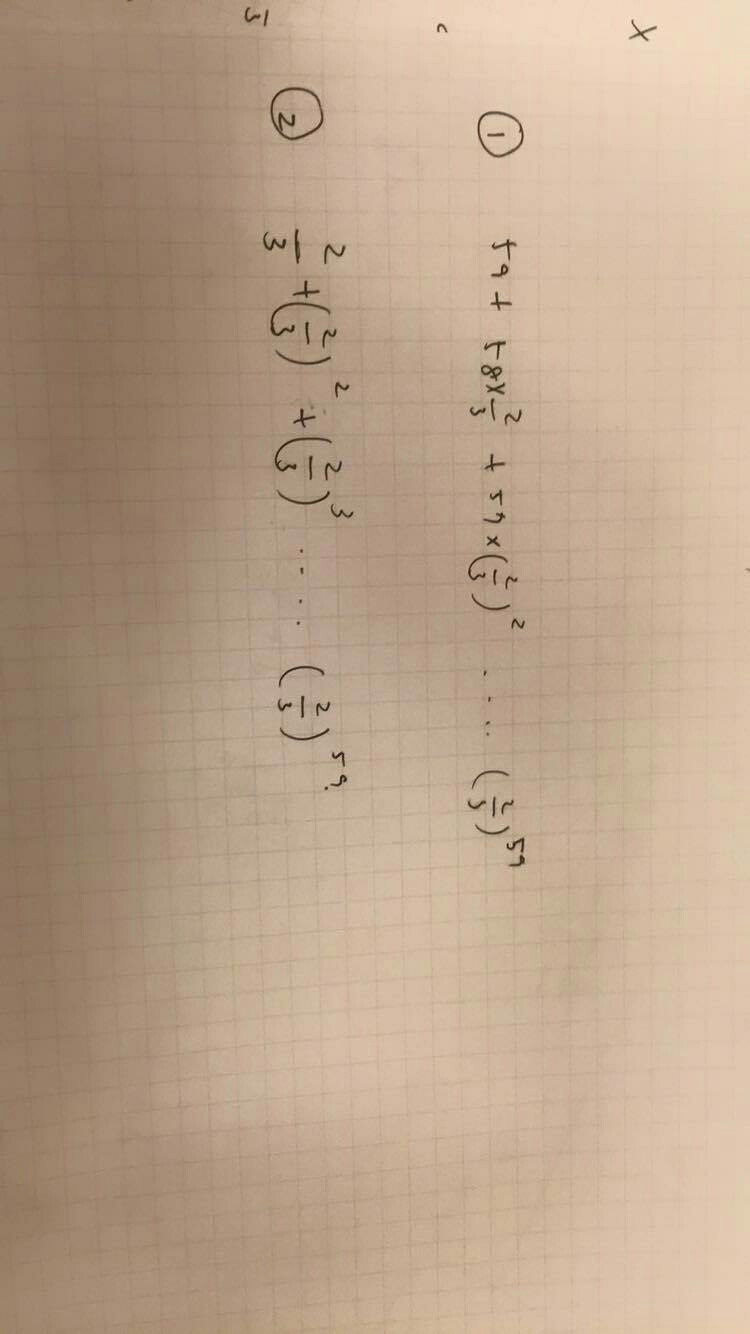 ① 59 + 58 × 2/3 + 57 × (2/3)² .... (2/3)⁵⁹
② 2/3 + (2/3)² + (2/3)³ ..... (2/3)⁵⁹